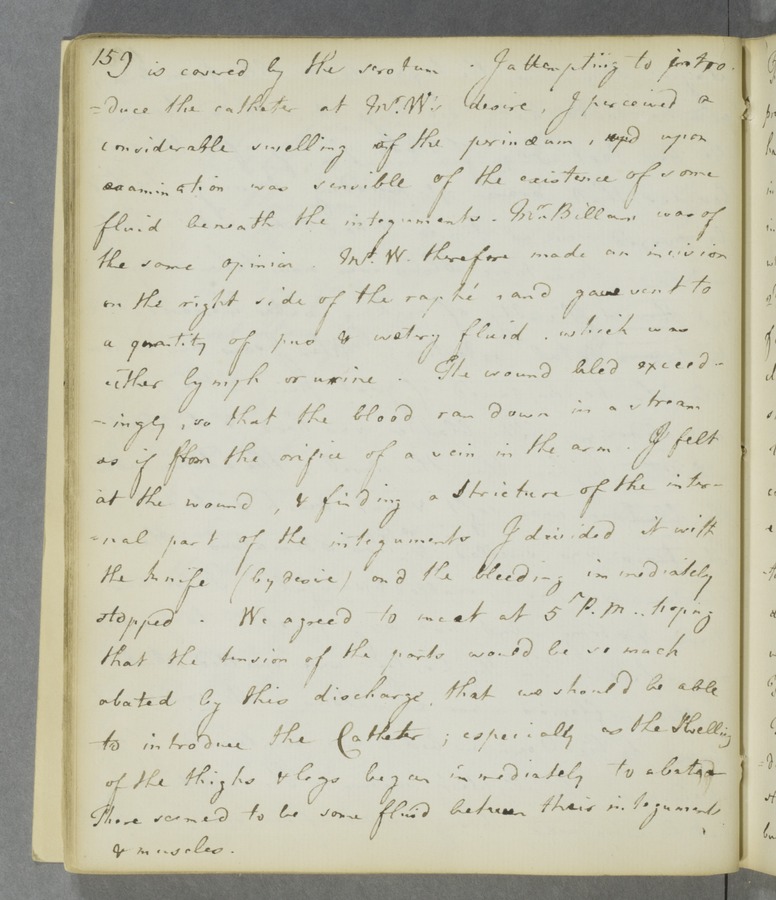 159 is covered by the scrotum. I attempting to intro-
=duce the catheter at Mr. W's desire, I perceived a
considerable swelling of the perinæum, and upon
examination was sensible of the existence of some
fluid beneath the integuments. Mr. Billam was of
the same opinion. Mr. W. therefore made an incision
on the right side of the raphé, and gave vent to
a quantity of pus & watery fluid, which was
either lymph or urine. The wound bled exceed-
-ingly, so that the blood ran down in a stream
as if from the orifice of a vein in the arm. I felt
at the wound, & finding a stricture of the inter-
-nal part of the integuments I divided it with
the knife (by desire) and the bleeding immediately
stopped. We agreed to meet at 5 P.M. hoping
that the tension of the parts would be so much
abated by this discharge, that we should be able
to introduce the Catheter; especially as the swelling
of the thighs & legs began immediately to abate
There seemed to be some fluid between their integuments
& muscles.